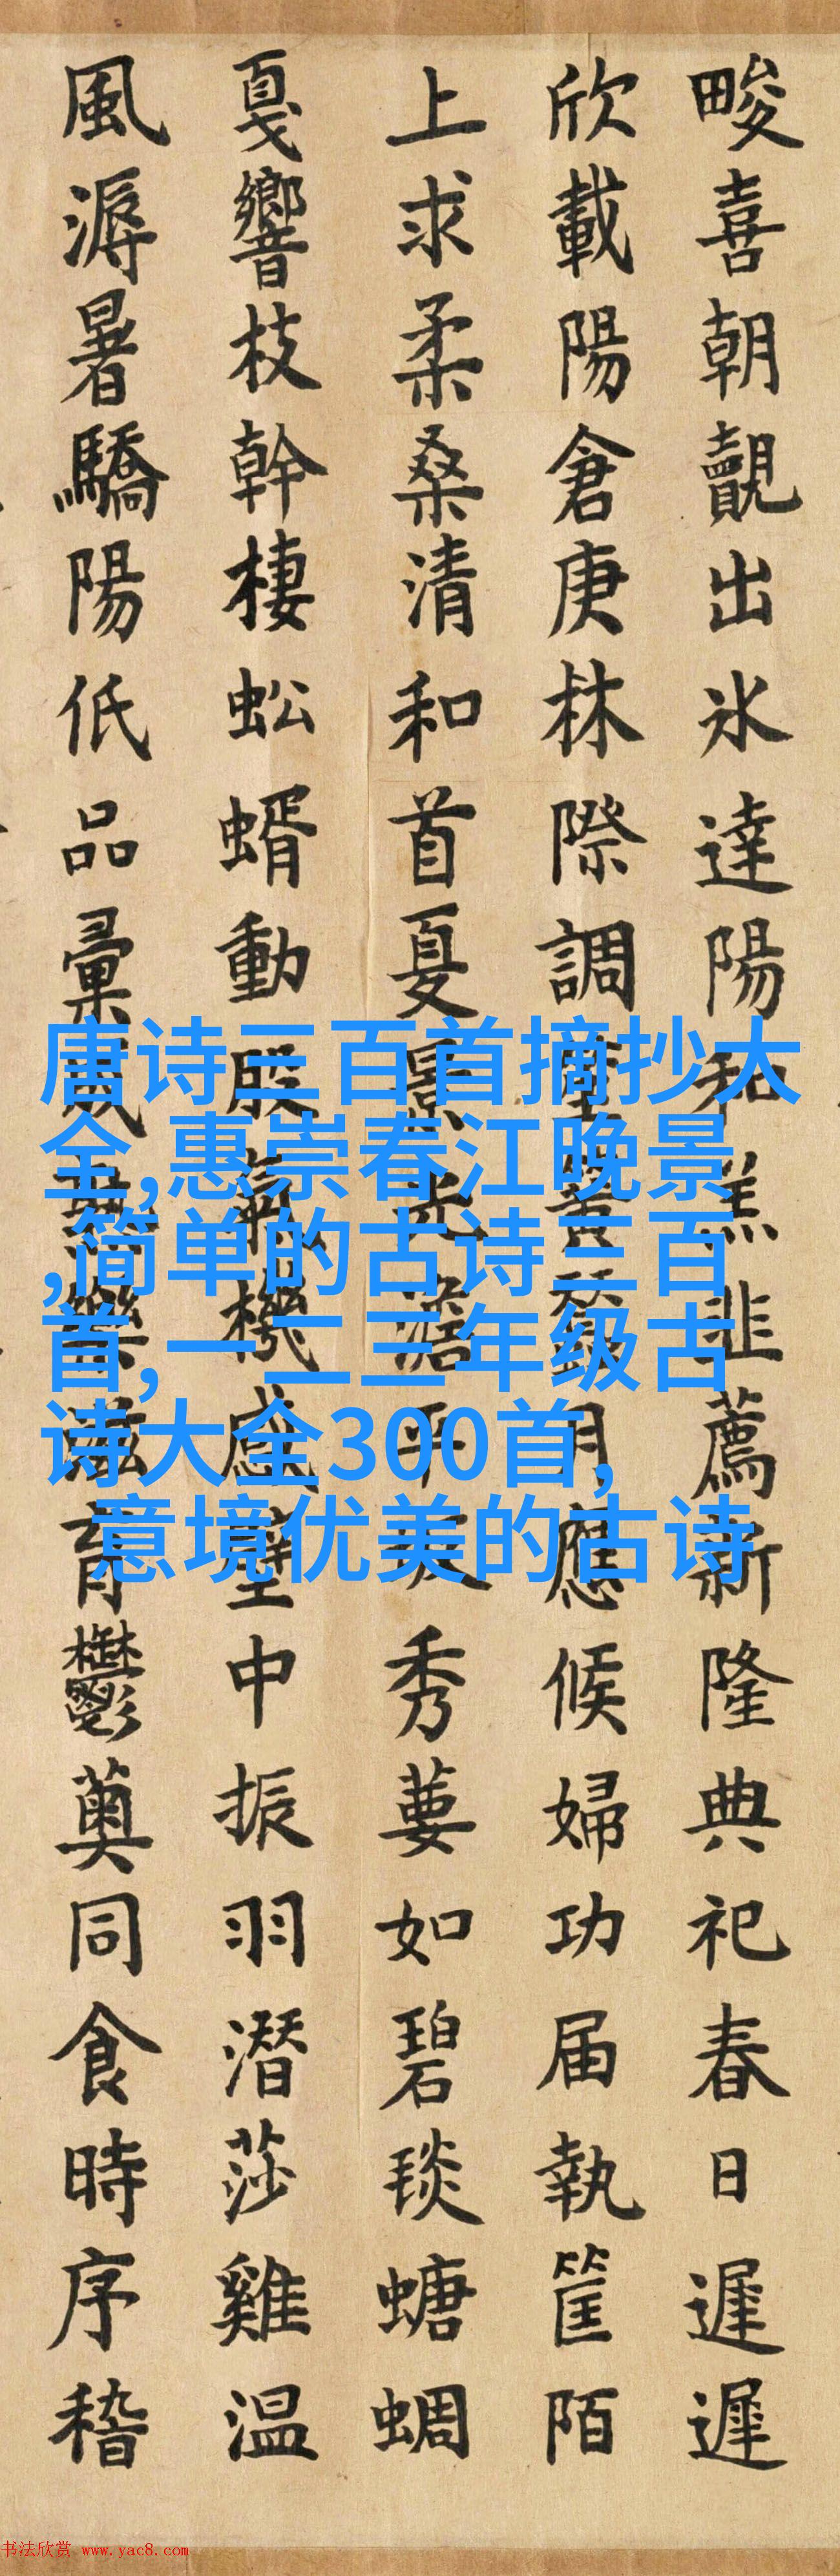 畯喜朝覿出氷達陽和羔韭薦新隆典祀春日遲遲
欣載陽倉庚林際調 應候婦功届執筐陌
上求柔桑清和首夏景光澹平 秀葽如碧琰螗蜩
戛響枝幹棲蚣蝑動股氣機感 中振羽潛莎雞温
風溽暑驕陽低品彙咸 育鬱薁同食時序稽
唐诗三百首摘抄大
全,惠崇春江晚景
,简单的古诗三百
首,一二三年级古
诗大全300首,
意境优美的古诗
书法欣赏 www.yac8.com